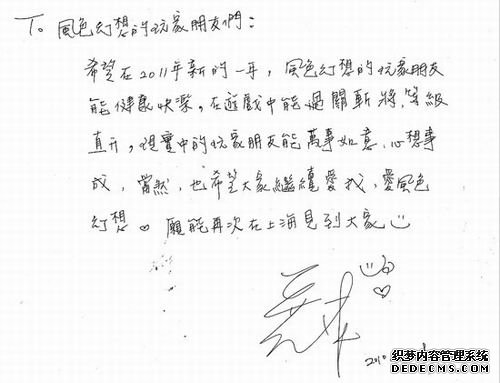 To 風色幻想的玩家朋友們：
希望在2011年新的一年，風色幻想的玩家朋友
能健康快樂，在遊戲中能過關斬將、等級
直升，現實中的玩家朋友能萬事如意、心想事
成，當然，也希望大家繼續愛我、愛風色
幻想♡ 願能再次在上海見到大家
2010
织梦内容管理系统
DEDECMS.COM